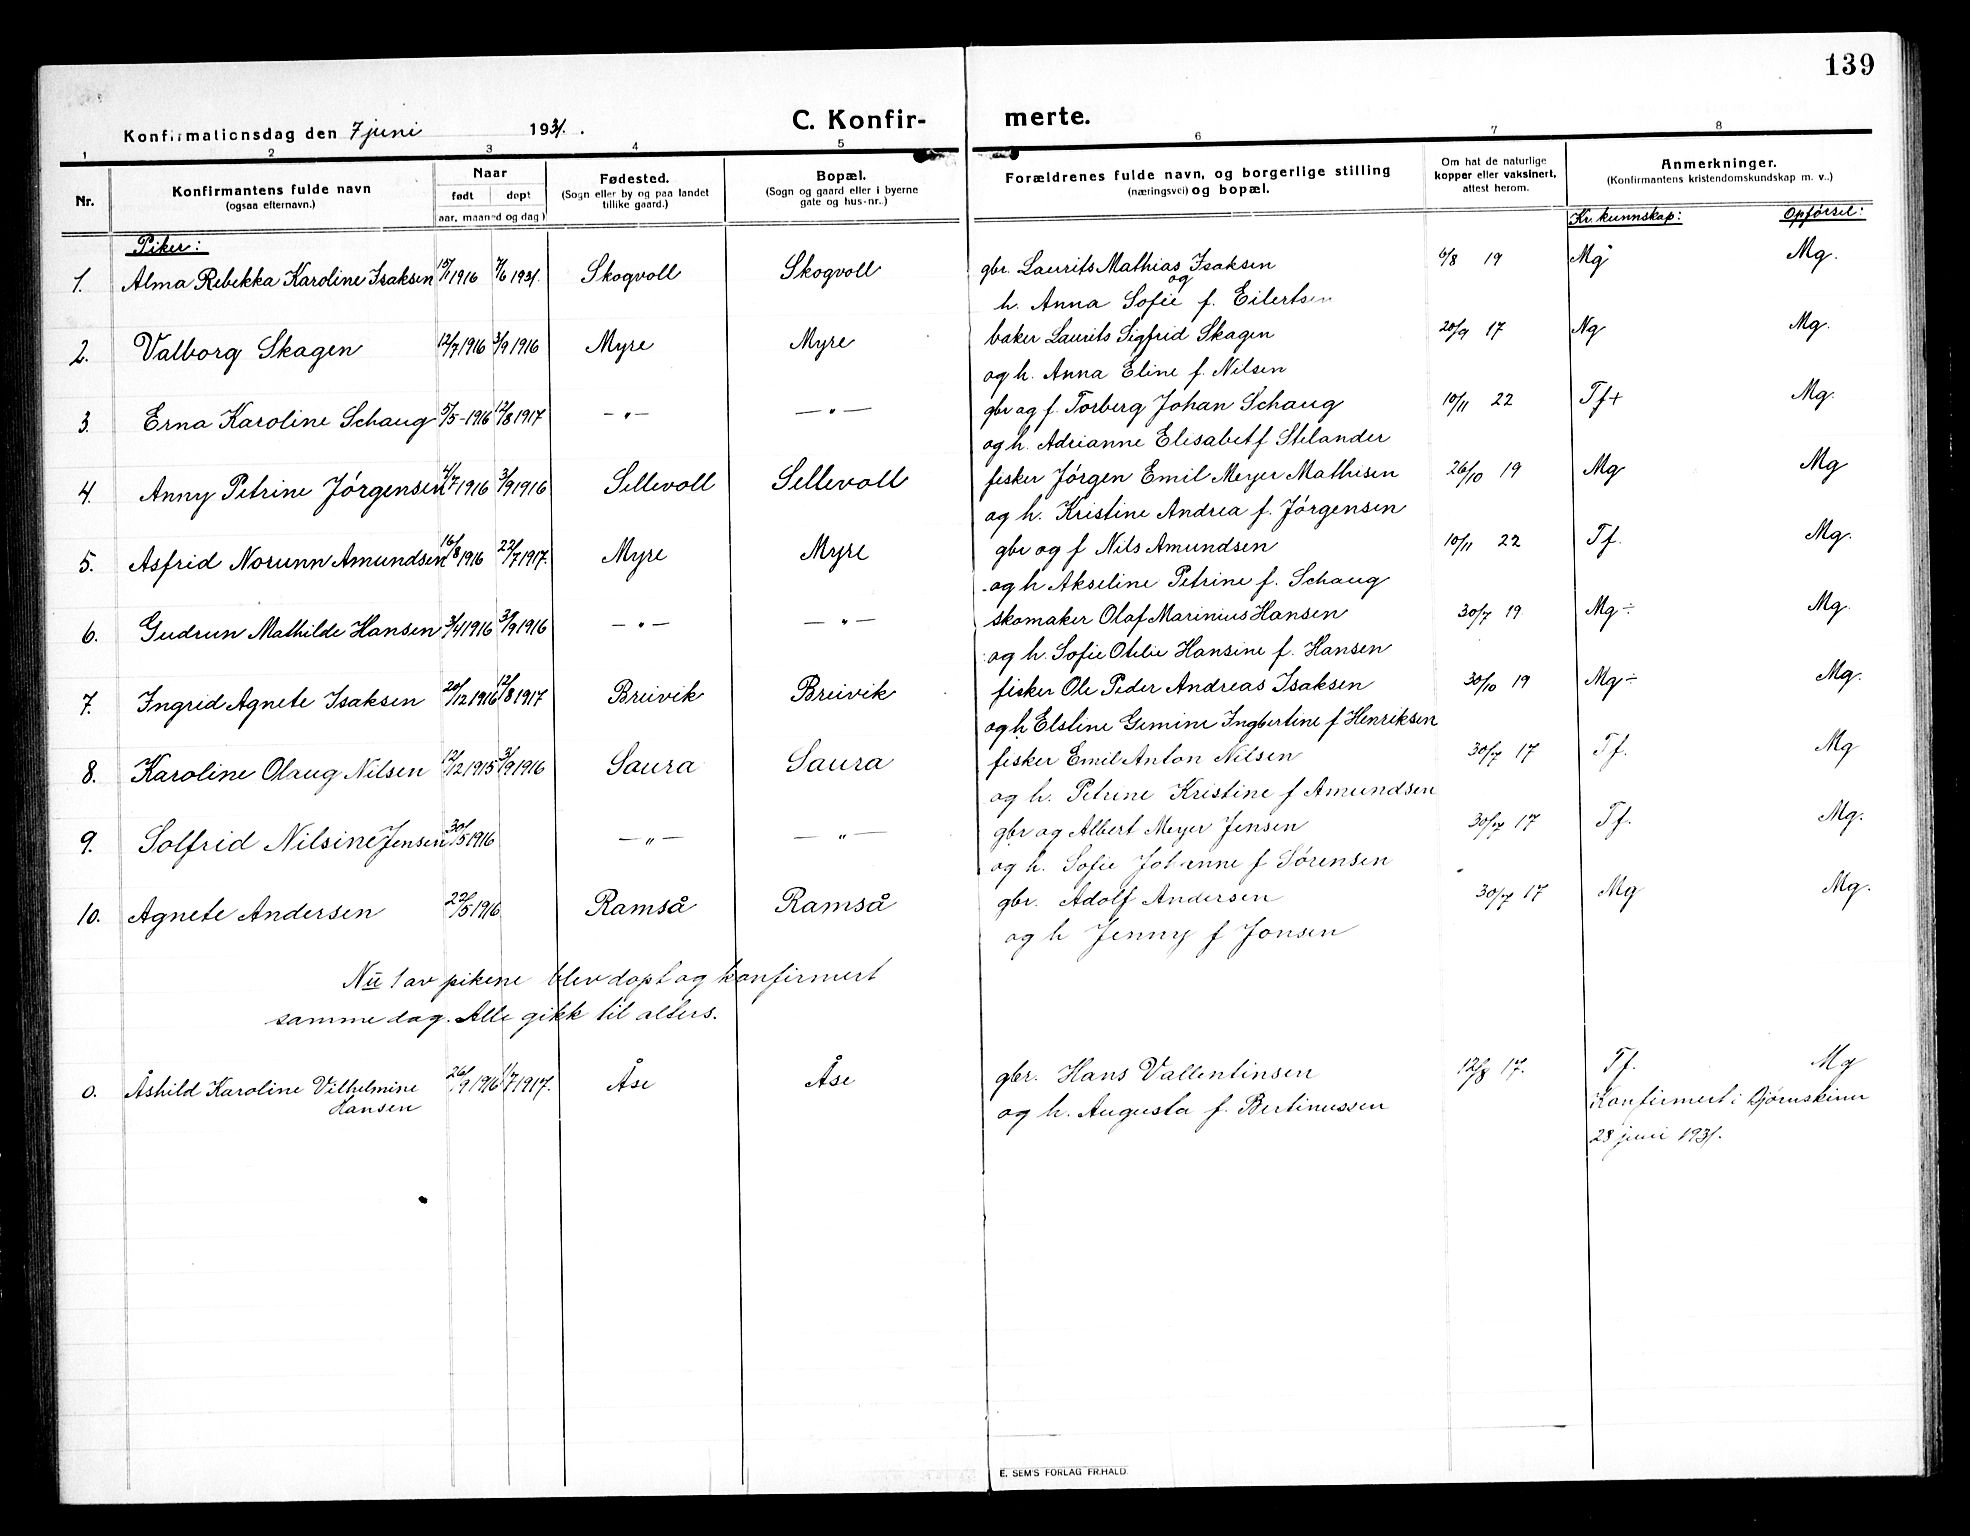 139
Konfirmationsdag den 7 juni 1931.
C. Konfir- merte.
1 2 3 4 5 6 7 8
Nr.
Konfirmantens fulde navn
(ogsaa efternavn.)
Naar
født døpt
aar, maaned og dag)
Fødested.
(Sogn eller by og paa landet
tillike gaard.)
Bopæl.
(Sogn og gaard eller i byerne
gate og hus-nr..)
Forældrenes fulde navn, og borgerlige stilling
(næringsvei) og bopæl.
Om hat de naturlige
kopper eller vaksinert,
attest herom.
Anmerkninger.
(Konfirmantens kristendomskundskap m. v..)
Kr. kunnskap: Opførsel:
Piker:
1. Alma Rebekka Karoline Isaksen 15/1 1916 7/6 1931. Skogvoll Skogvoll gbr. Laurits Mathias Isaksen 6/8 19 Mg Mg.
og
h. Anna Sofie f. Eilertsen
2. Valborg Skagen 12/7 1916 3/9 1916 Myre Myre baker Laurits Sigfrid Skagen 20/9 17 Ng Mg.
og h. Anna Eline f. Nilsen
3. Erna Karoline Schaug 5/5-1916 12/8 1917 —"— —"— gbr og f. Torberg Johan Schaug 10/11 22 Tf+ Mg.
og h. Adrianne Elisabet f Stelander
4. Anny Petrine Jørgensen 4/7 1916 3/9 1916 Sellevoll Sellevoll fisker Jørgen Emil Meyer Mathisen 26/10 19 Mg Mg
og h. Kristine Andrea f. Jørgensen
5. Asfrid Norunn Amundsen 16/8 1916 22/7 1917. Myre Myre gbr og f Nils Amundsen 10/11 22 Tf. Mg.
og h Akseline Petrine f. Schaug
6. Gudrun Mathilde Hansen 3/4 1916 3/9 1916 —"— —"— skomaker Olaf Marinius Hansen 30/7 19 Mg÷ Mg.
og h. Sofie Otelie Hansine f. Hansen
7. Ingrid Agnete Isaksen 20/12 1916 12/8 1917 Breivik Breivik fisker Ole Peder Andreas Isaksen 30/10 19 Mg÷ Mg.
og h Elstine Gemine Ingbertine f Henriksen
8. Karoline Olaug Nilsen 12/12 1915 3/9 1916 Saura Saura fisker Emil Anton Nilsen 30/7 17 Tf. Mg
og h. Petrine Kristine f Amundsen
9. Solfrid Nilsine Jensen 30/5 1916 —"— —"— gbr og Albert Meyer Jensen 30/7 17 Tf. Mg.
og h. Sofie Johanne f Sørensen
10. Agnete Andersen 22/5 1916 Ramså Ramså gbr. Adolf Andersen 30/7 17 Mg Mg.
og h Jenny f Jonsen
1 av pikene blev døpt og konfirmert
samme dag. Alle gikk til alters.
0. Åshild Karoline Vilhelmine 26/9 1916 1/7 1917. Åse Åse gbr. Hans Vallentinsen 12/8 17. Tf. Mg
Hansen og h. Augusta f. Bertinussen Konfirmert i Bjørnskinn
28 juni 1931.
E. SEM'S FORLAG FR.HALD